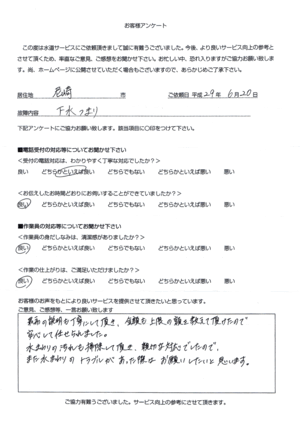 お客様アンケート
この度は水道サービスにご依頼頂きまして誠に有難うございました。今後、より良いサービス向上の参考と
させて頂くため、率直なご意見、ご感想をお聞かせ下さい。お忙しい中、恐れ入りますがご協力お願い致しま
す。尚、ホームページに公開させていただく場合もございますので、あらかじめご了承下さい。
居住地 尼崎 市 ご依頼日 平成 29 年 6 月 20 日
故障内容 下水つまり
下記アンケートにご協力お願い致します。該当項目に〇印をつけて下さい。
■電話受付の対応等についてお聞かせ下さい
<受付の電話対応は、わかりやすく丁寧な対応でしたか?>
良い どちらかといえば良い どちらでもない どちらかといえば悪い 悪い
<お伝えしたお時間どおりにお伺いすることができていましたか?>
良い どちらかといえば良い どちらでもない どちらかといえば悪い 悪い
■作業員の対応等についてお聞かせ下さい
<作業員の身だしなみは、清潔感がありましたか?>
良い どちらかといえば良い どちらでもない どちらかといえば悪い 悪い
<作業の仕上がりは、ご満足いただけましたか?>
良い どちらかといえば良い どちらでもない どちらかといえば悪い 悪い
お客様のお声をもとにより良いサービスを提供させて頂きたいと思っています。
ご意見、ご感想等、一言お願い致します
最初の説明も丁寧にして頂き、金額も上限の額を教えて頂けたので
安心して任せられました。
水まわりの汚れも掃除して頂き、親切な対応でしたので、
また水まわりのトラブルがあった際はお願いしたいと思います。
ご協力有難うございました。サービス向上の参考にさせて頂きます。